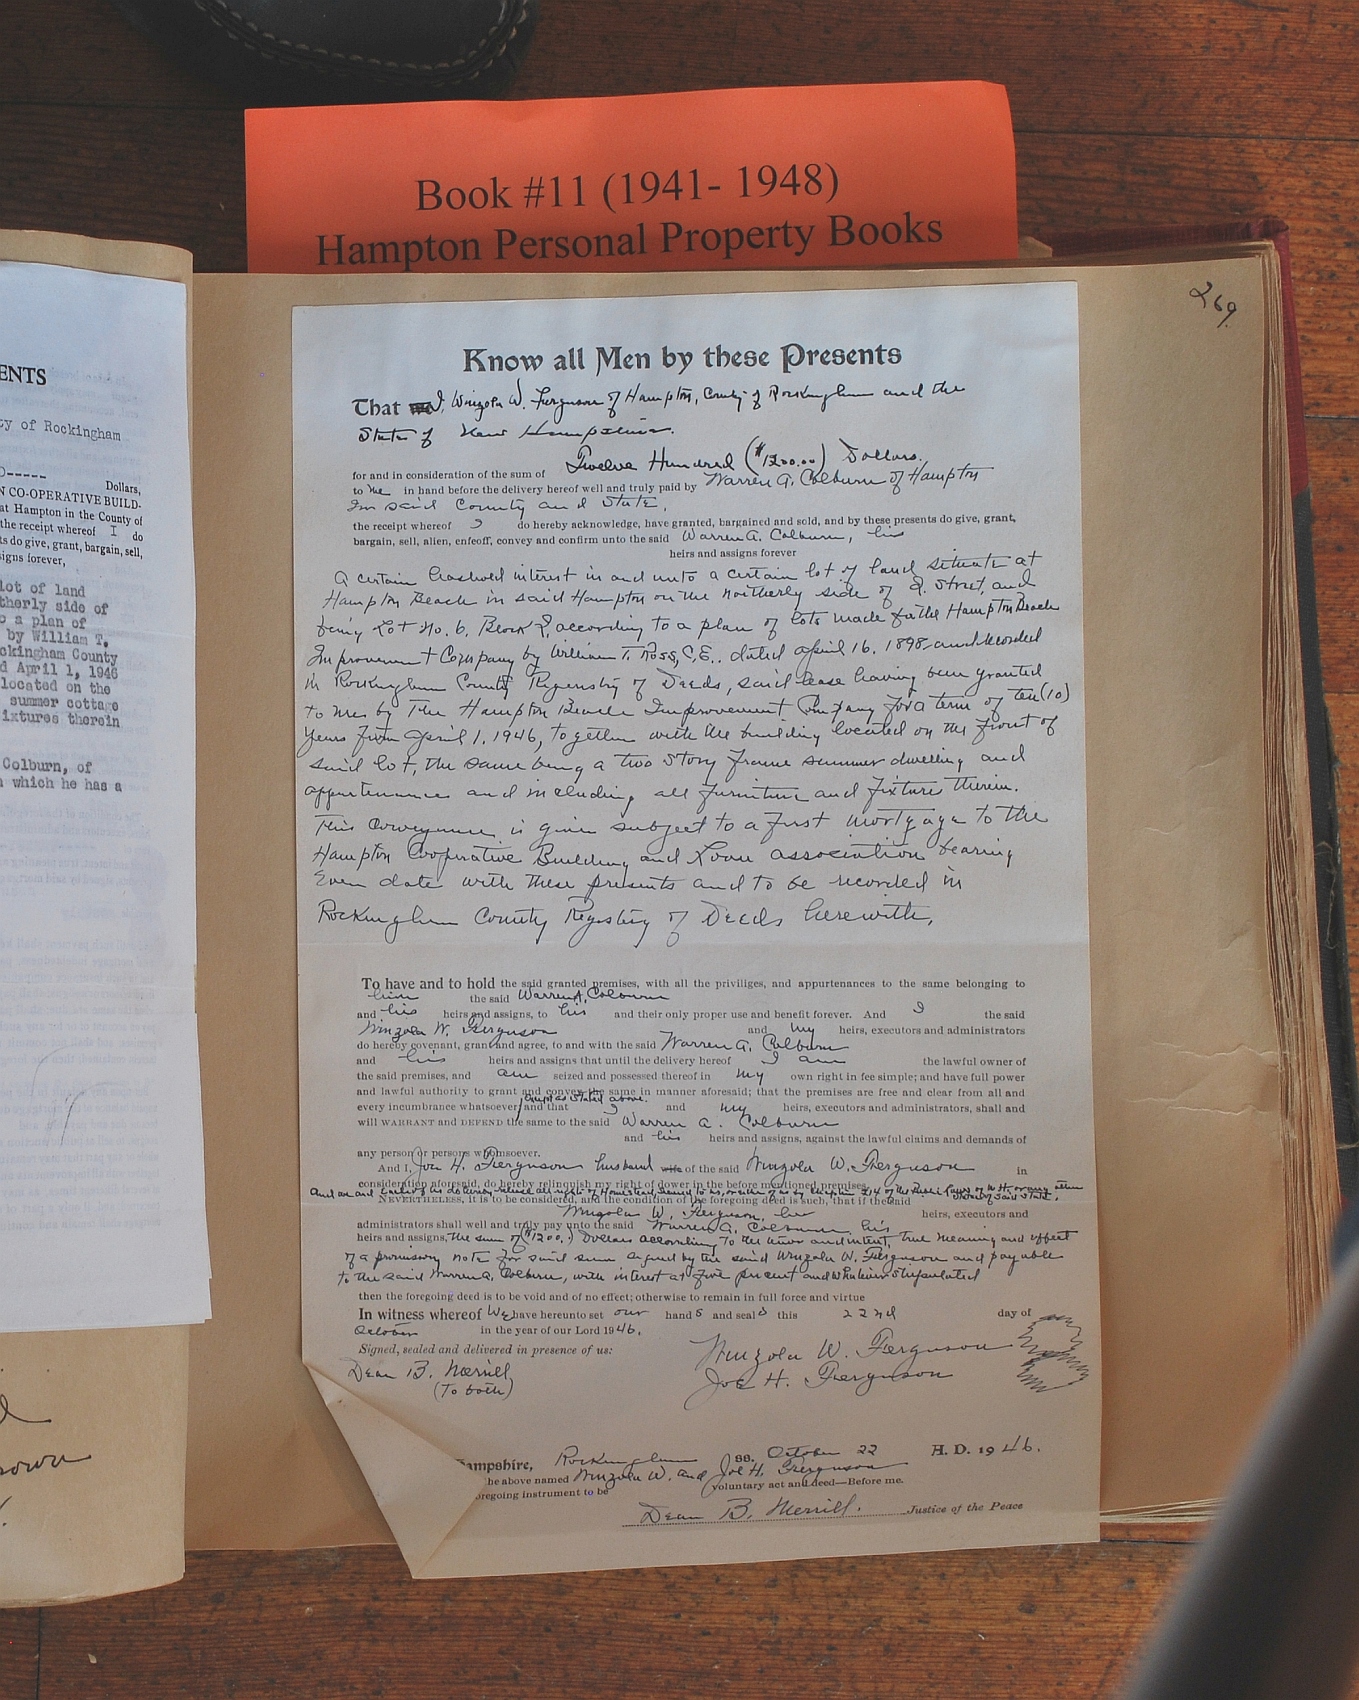 Book #11 (1941- 1948)
Hampton Personal Property Books
269
ENTS
ty of Rockingham
-----
Dollars,
N CO-OPERATIVE BUILD-
at Hampton in the County of
the receipt whereof I do
ts do give, grant, bargain, sell,
signs forever,
lot of land
therly side of
o a plan of
by William T.
ckingham County
d April 1, 1946
located on the
summer cottage
ixtures therein
Colburn, of
n which he has a
Know all Men by these Presents
That I, Winzola W. Ferguson of Hampton, County of Rockingham and the
State of New Hampshire.
for and in consideration of the sum of Twelve Hundred ($1200.00) Dollars.
to me in hand before the delivery hereof well and truly paid by Warren A. Colburn of Hampton
In said County and State,
the receipt whereof I do hereby acknowledge, have granted, bargained and sold, and by these presents do give, grant,
bargain, sell, alien, enfeoff, convey and confirm unto the said Warren A. Colburn, his
heirs and assigns forever
A certain leasehold interest in and unto a certain lot of land situate at
Hampton Beach in said Hampton on the northerly side of Street, and
being Lot No. 6, Block according to a plan of lots made for the Hampton Beach
Improvement Company by William T. Ross, C.E., dated April 16, 1898 and recorded
in Rockingham County Registry of Deeds, said lease having been granted
to me by The Hampton Beach Improvement Company for a term of ten (10)
years from April 1, 1946, together with the building located on the front of
said lot, the same being a two story frame summer dwelling and
appurtenances and including all furniture and fixtures therein.
This conveyance is given subject to a first mortgage to the
Hampton Cooperative Building and Loan association bearing
Even date with these presents and to be recorded in
Rockingham County Registry of Deeds herewith.
To have and to hold the said granted premises, with all the priviliges, and appurtenances to the same belonging to
him the said Warren A. Colburn
and his heirs and assigns, to his and their only proper use and benefit forever. And I the said
Winzola W. Ferguson and my heirs, executors and administrators
do hereby covenant, grant and agree, to and with the said Warren A. Colburn
and his heirs and assigns that until the delivery hereof I am the lawful owner of
the said premises, and am seized and possessed thereof in my own right in fee simple; and have full power
and lawful authority to grant and convey the same in manner aforesaid; that the premises are free and clear from all and
except as stated above.
every incumbrance whatsoever; and that I and my heirs, executors and administrators, shall and
will WARRANT and DEFEND the same to the said Warren A. Colburn
and his heirs and assigns, against the lawful claims and demands of
any person or persons whomsoever.
And I, Joe H. Ferguson husband wife of the said Winzola W. Ferguson in
consideration aforesaid, do hereby relinquish my right of dower in the before mentioned premises.
And we and each of us do hereby release all rights of Homestead, secured to us, or either of us by Chapter 214 of the Public Laws of N.H. or any other
Statute of said State.
NEVERTHELESS, it is to be considered, and the condition of the foregoing deed is such, that if the said
Winzola W. Ferguson, her heirs, executors and
administrators shall well and truly pay unto the said Warren A. Colburn, his
heirs and assigns, the sum of ($1200.) Dollars according to the tenor and intent, true meaning and effect
of a promissory note for said sum signed by the said Winzola W. Ferguson and payable
to the said Warren A. Colburn, with interest at five percent and stipulated
then the foregoing deed is to be void and of no effect; otherwise to remain in full force and virtue
In witness whereof We have hereunto set our hands and seals this 22nd day of
October in the year of our Lord 1946.
Signed, sealed and delivered in presence of us:
Dean B. Merrill
(To both)
Winzola W. Ferguson
Joe H. Ferguson
ampshire, Rockingham ss. October 22 A. D. 1946.
he above named Winzola W. and Joe H. Ferguson
oregoing instrument to be voluntary act and deed—Before me.
Dean B. Merrill. Justice of the Peace
rown